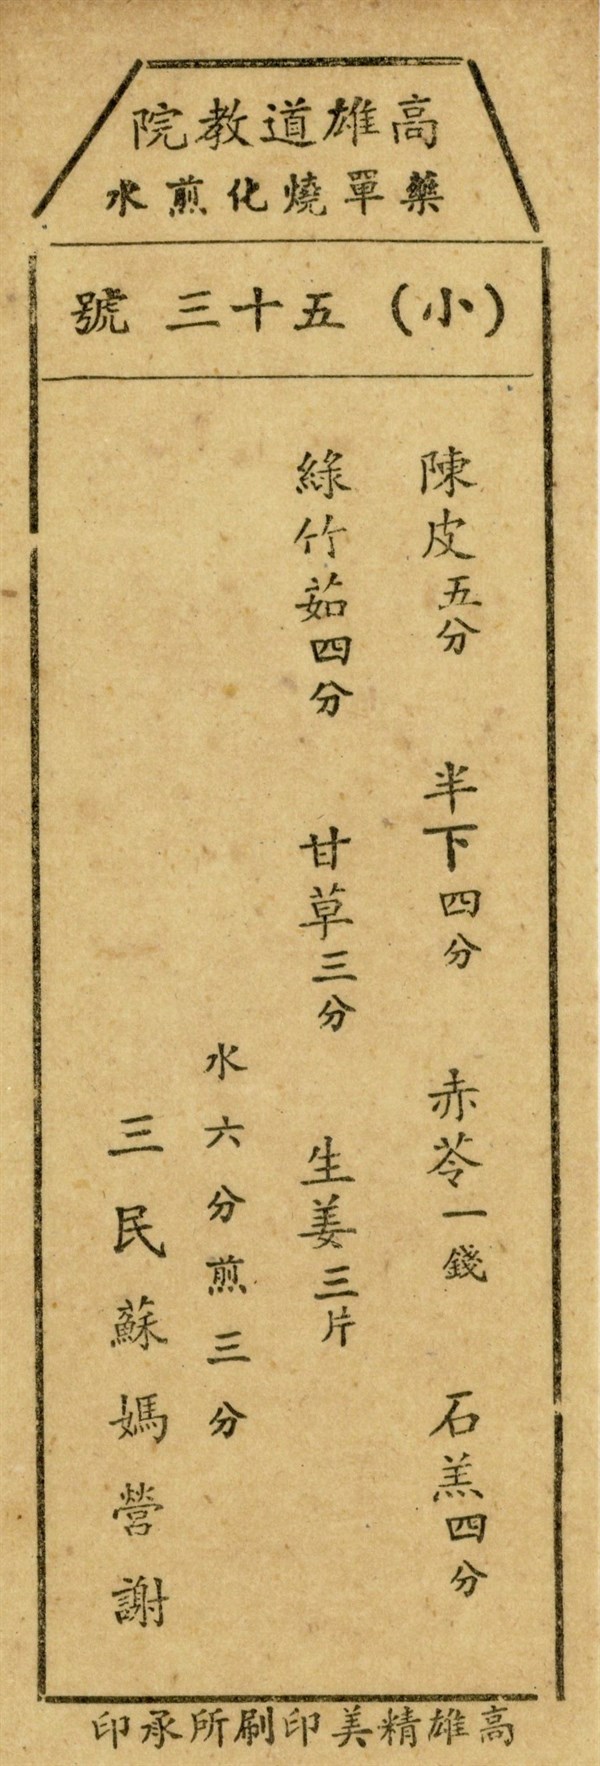 高雄道教院
藥單燒化煎水
(小)五十三號
陳皮五分 半下四分 赤苓一錢 石羔四分
綠竹茹四分 甘草三分 生姜三片
水六分煎三分
三民蘇媽營謝
高雄精美印刷所承印